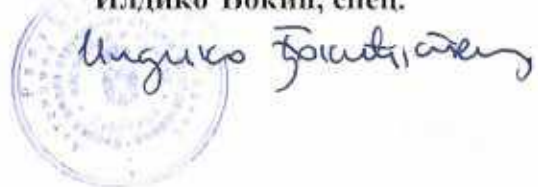 Илдико Ђокић, спец.
Илдико Ђокић, спец